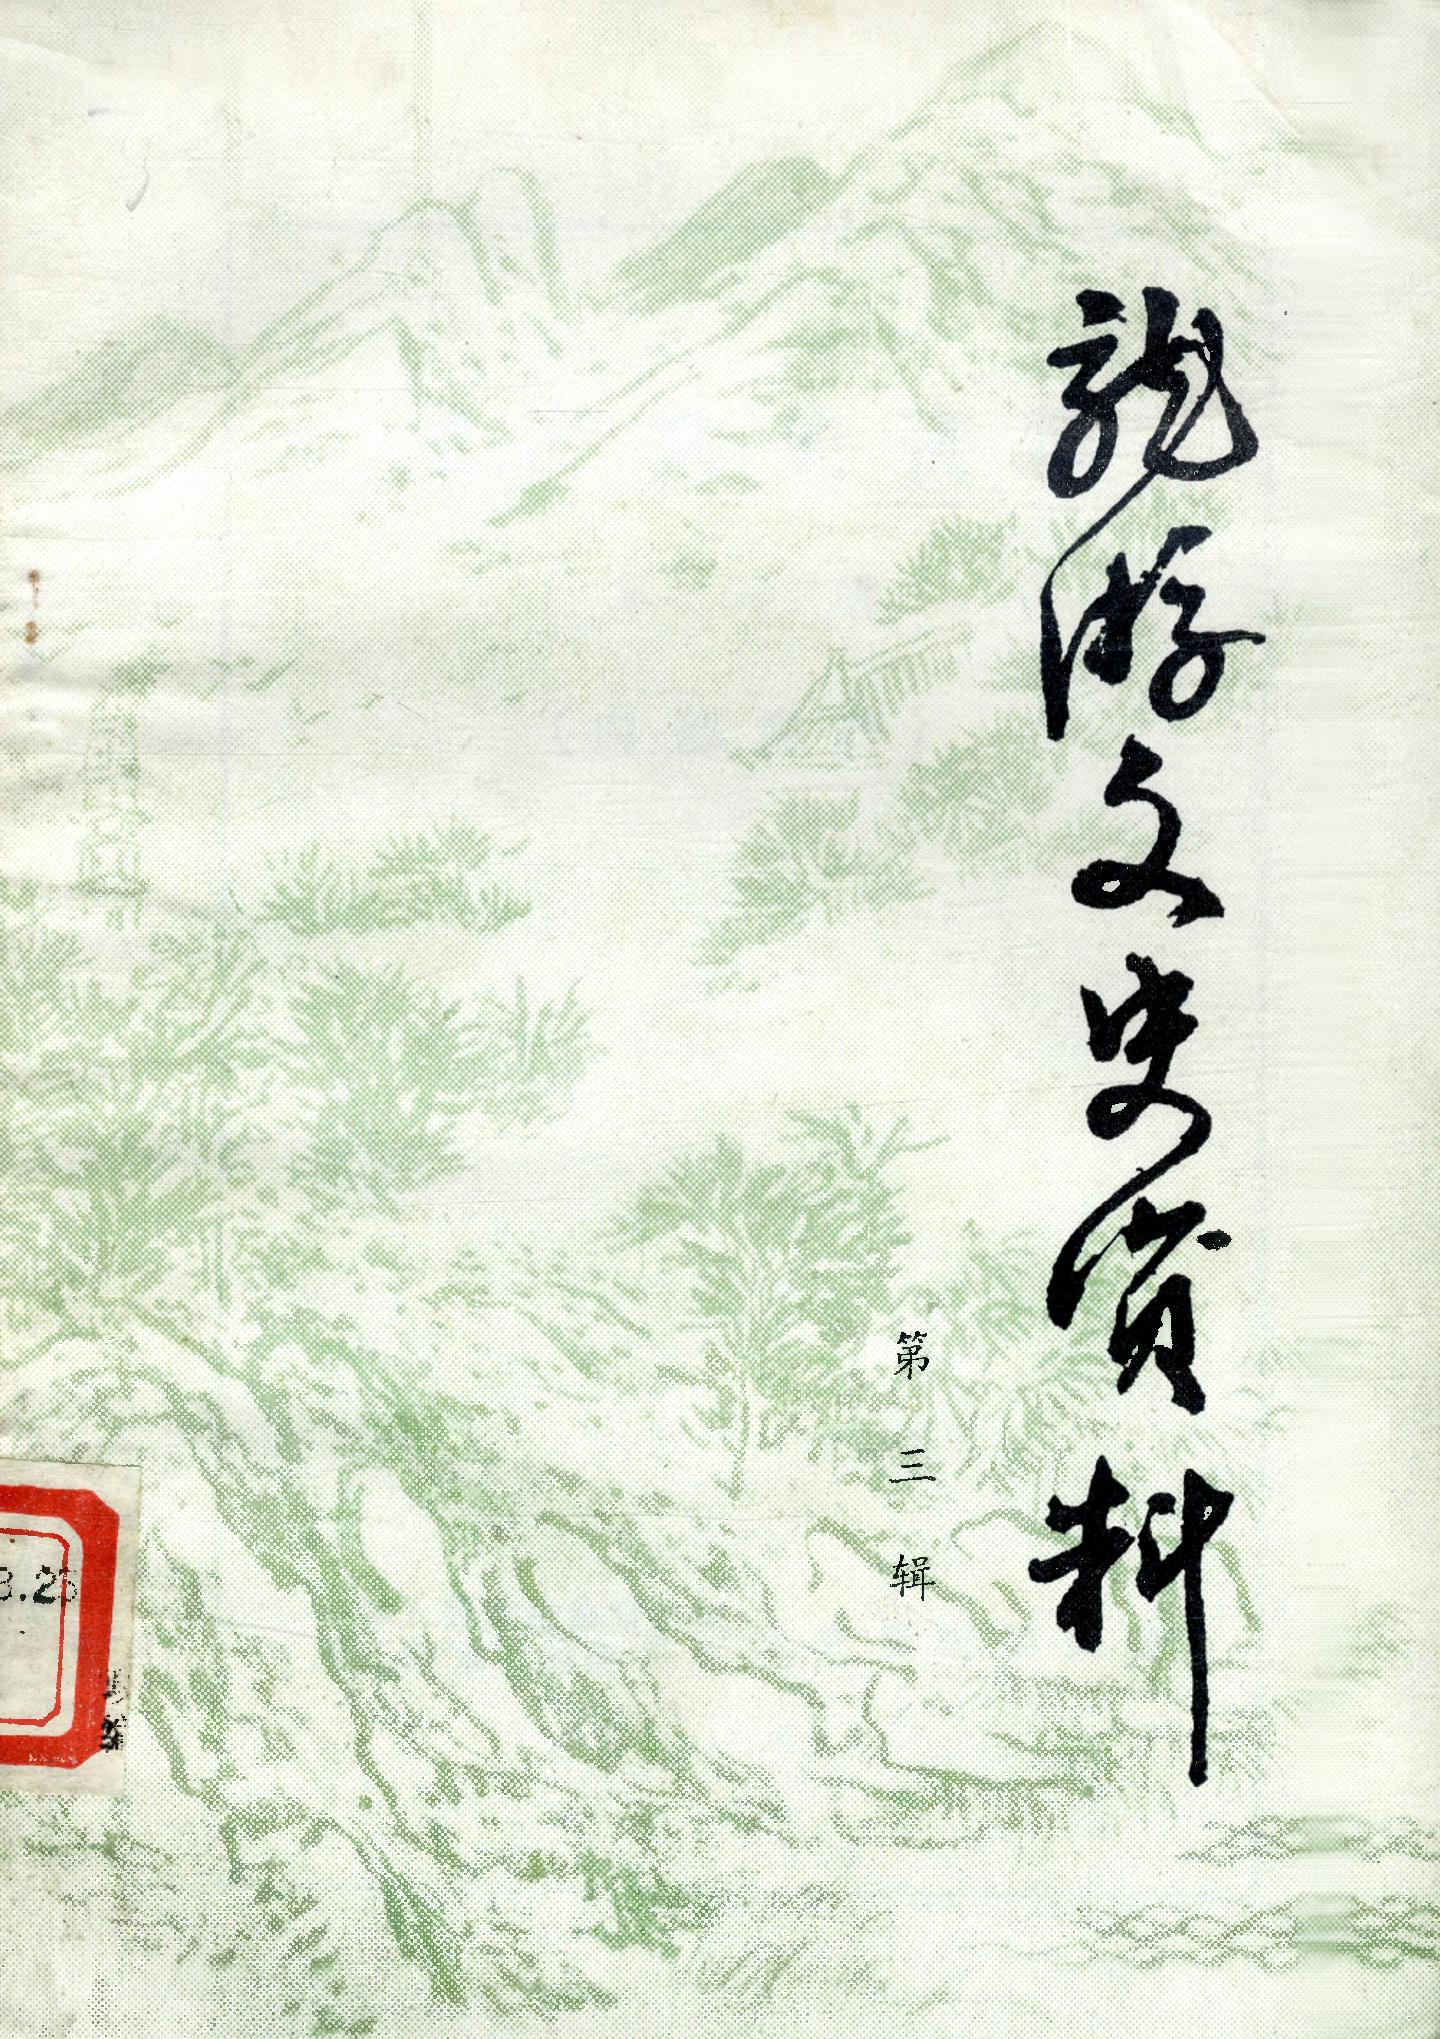 龙游文史资料
第三辑
3.25